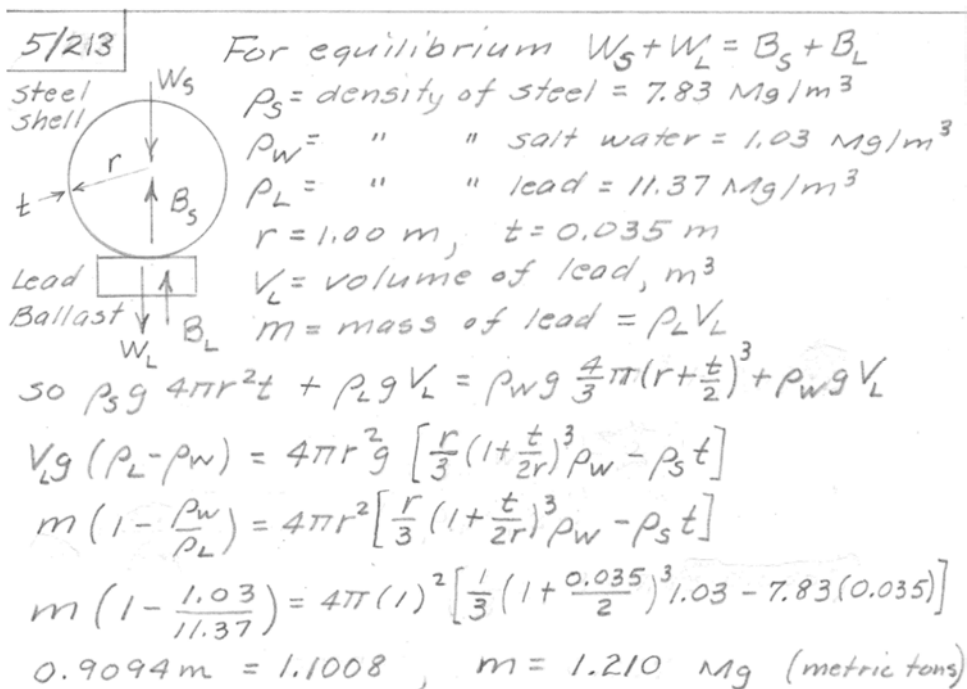 5/213
For equilibrium W_S + W_L = B_S + B_L
steel shell
W_S
r
t
B_S
Lead Ballast
W_L
B_L
ρ_S = density of steel = 7.83 Mg/m³
ρ_W = " " salt water = 1.03 Mg/m³
ρ_L = " " lead = 11.37 Mg/m³
r = 1.00 m, t = 0.035 m
V_L = volume of lead, m³
m = mass of lead = ρ_L V_L
so ρ_S g 4πr²t + ρ_L g V_L = ρ_W g 4/3 π(r + t/2)³ + ρ_W g V_L
V_L g (ρ_L - ρ_W) = 4πr²g [r/3 (1 + t/2r)³ ρ_W - ρ_S t]
m (1 - ρ_W/ρ_L) = 4πr² [r/3 (1 + t/2r)³ ρ_W - ρ_S t]
m (1 - 1.03/11.37) = 4π(1)² [1/3 (1 + 0.035/2)³ 1.03 - 7.83(0.035)]
0.9094 m = 1.1008, m = 1.210 Mg (metric tons)